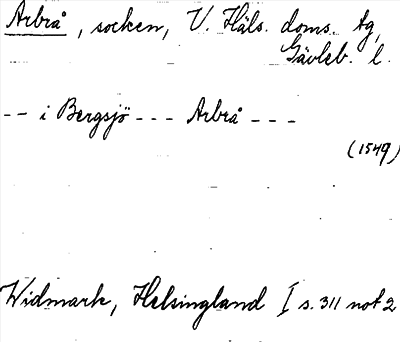 Arbrå, socken, V. Häls. doms. tg,
Gävleb. l.
-- i Bergsjö --- Arbrå ---
(1549)
Widmark, Helsingland I s. 311 not 2